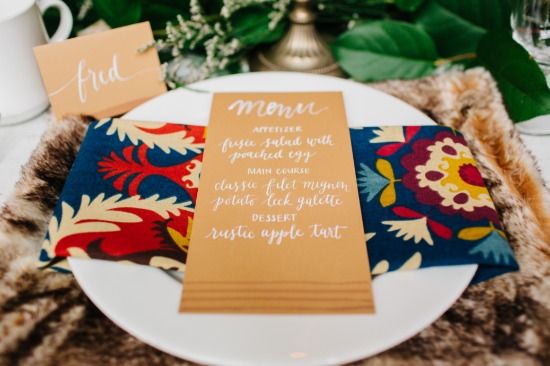 fred
menu
APPETIZER
frisée salad with
poached egg
MAIN COURSE
classic filet mignon
potato leek galette
DESSERT
rustic apple tart